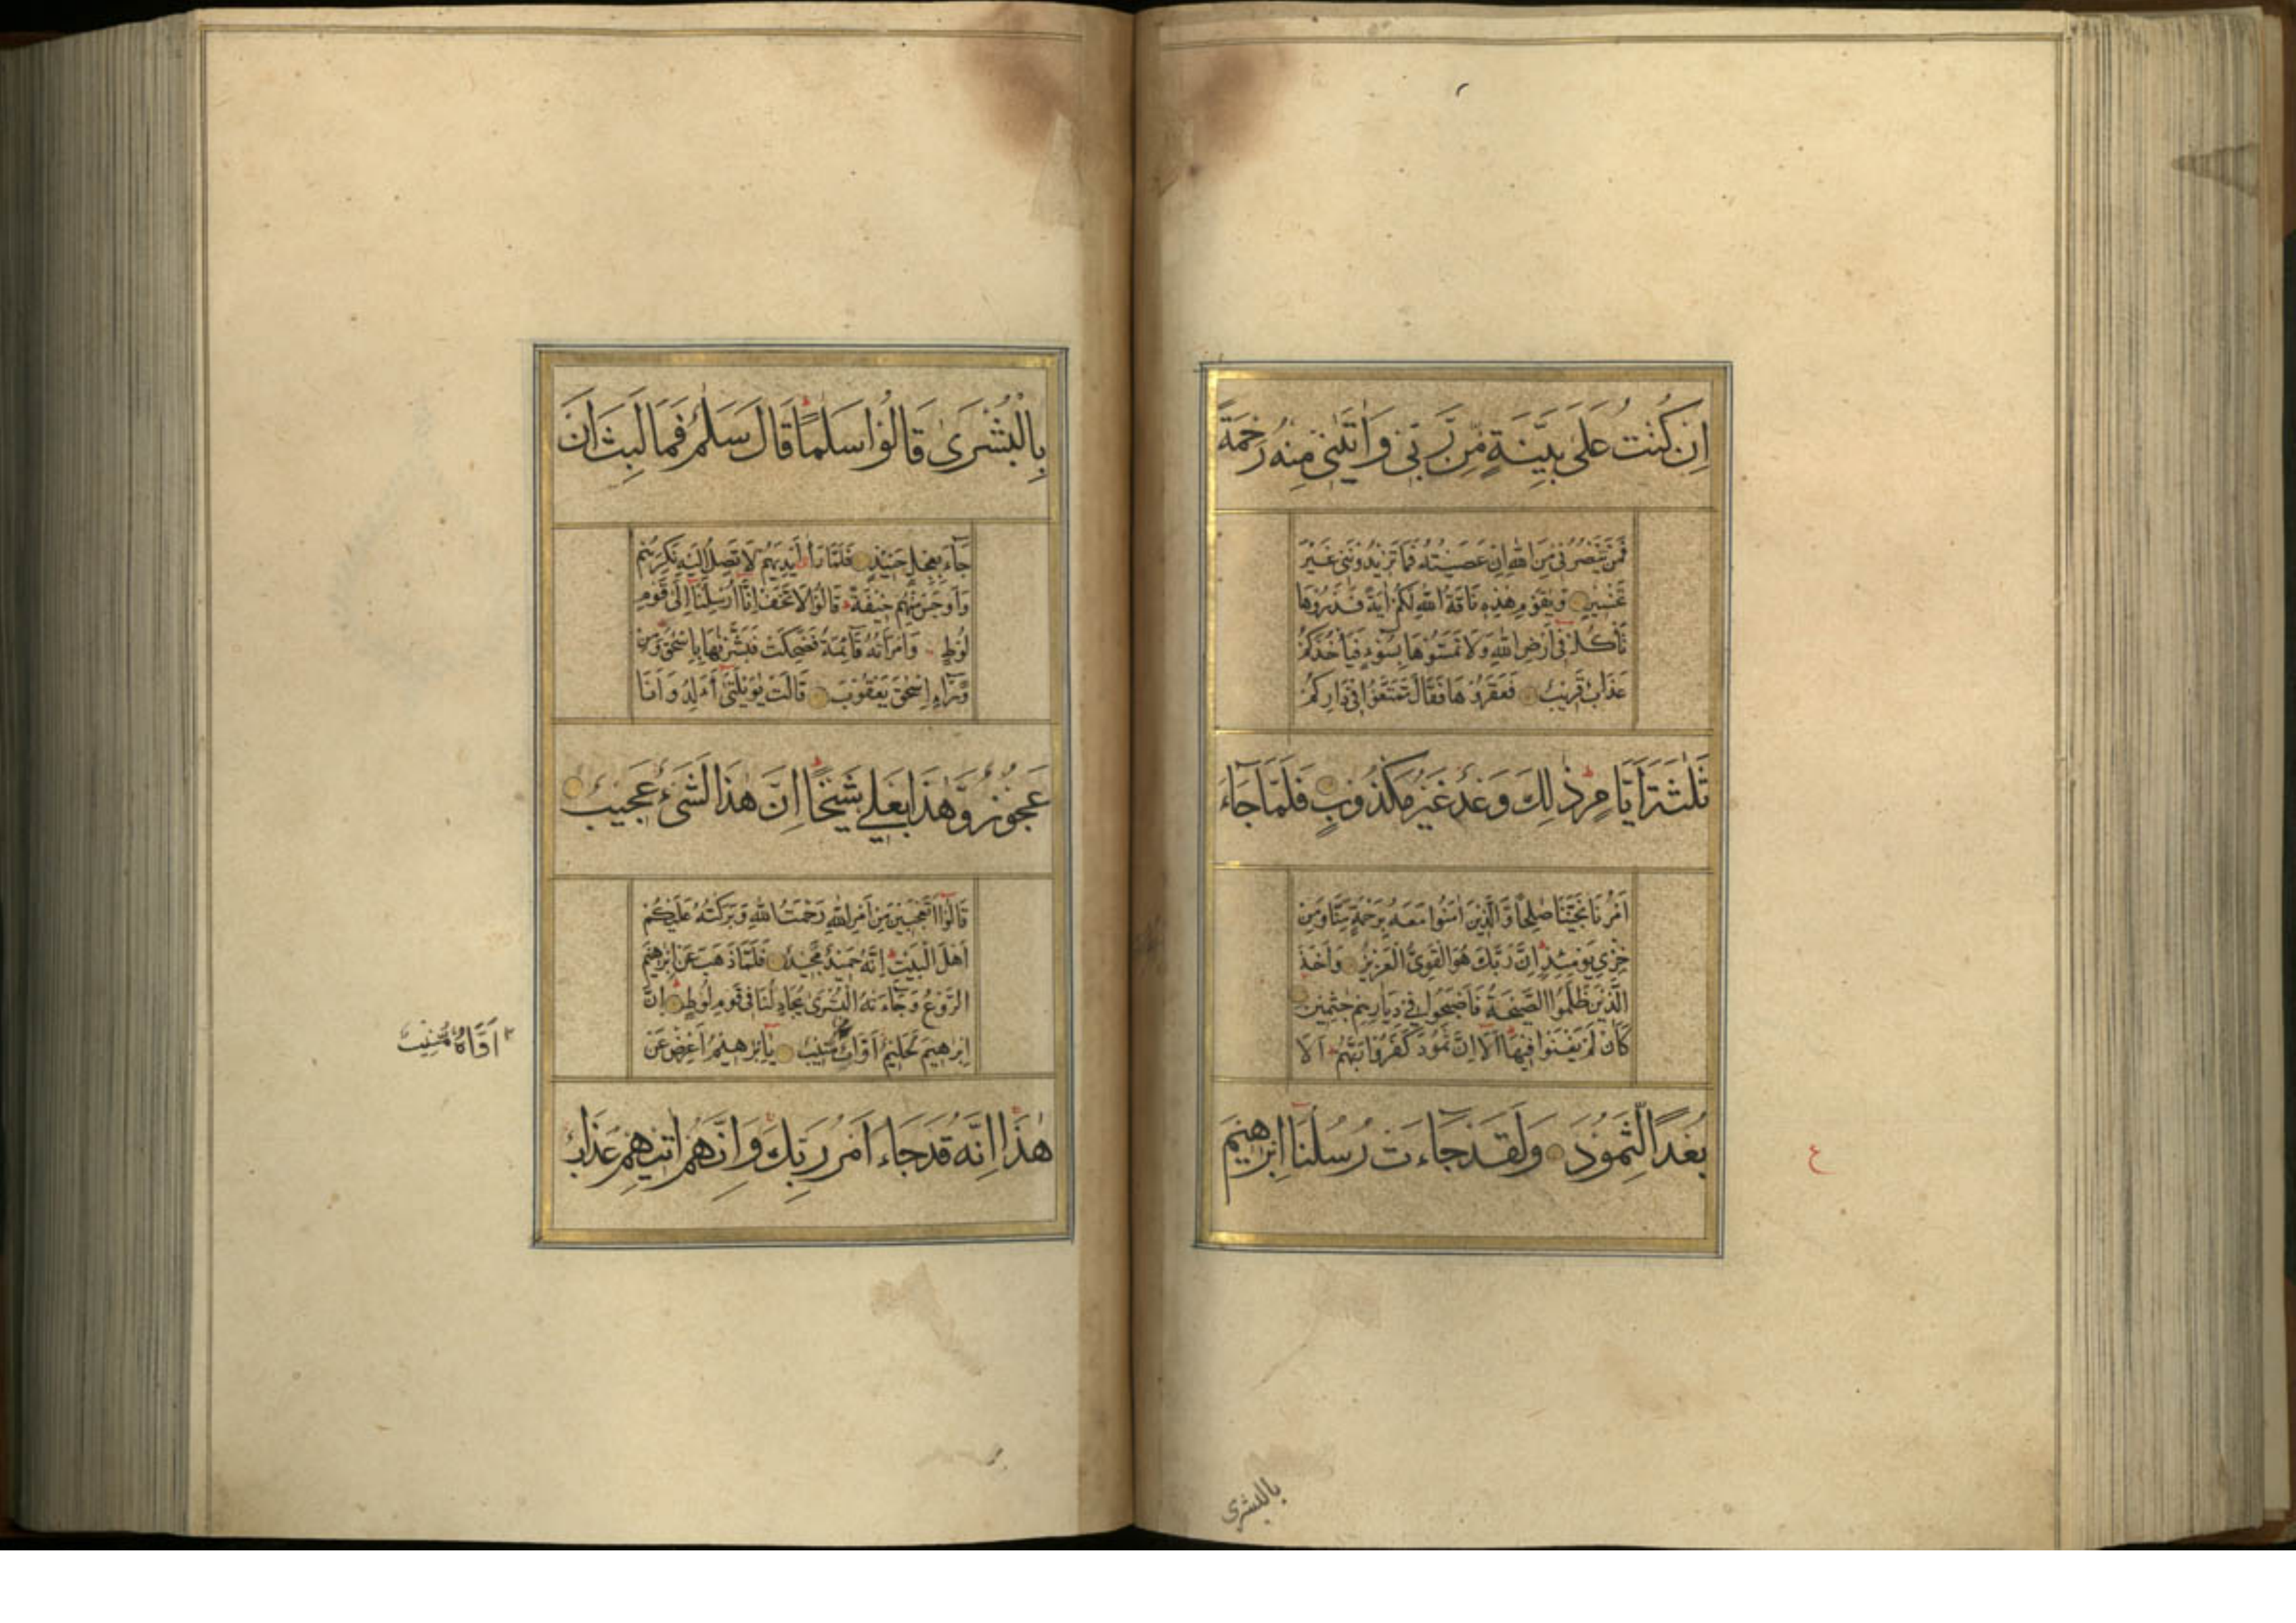 اِنْ كُنْتُ عَلٰى بَيِّنَةٍ مِّنْ رَّبّٖى وَاٰتٰىنٖى مِنْهُ رَحْمَةً
فَمَنْ يَّنْصُرُنٖى مِنَ اللّٰهِ اِنْ عَصَيْتُهُ فَمَا تَزٖيدُونَنٖى غَيْرَ
تَخْسٖيرٍ وَيٰقَوْمِ هٰذِهٖ نَاقَةُ اللّٰهِ لَكُمْ اٰيَةً فَذَرُوهَا
تَأْكُلْ فٖى اَرْضِ اللّٰهِ وَلَا تَمَسُّوهَا بِسُوٓءٍ فَيَأْخُذَكُمْ
عَذَابٌ قَرٖيبٌ فَعَقَرُوهَا فَقَالَ تَمَتَّعُوا فٖى دَارِكُمْ
ثَلٰثَةَ اَيَّامٍ ذٰلِكَ وَعْدٌ غَيْرُ مَكْذُوبٍ فَلَمَّا جَآءَ
اَمْرُنَا نَجَّيْنَا صٰلِحًا وَّالَّذٖينَ اٰمَنُوا مَعَهُ بِرَحْمَةٍ مِّنَّا وَمِنْ
خِزْىِ يَوْمِئِذٍ اِنَّ رَبَّكَ هُوَ الْقَوِىُّ الْعَزٖيزُ وَاَخَذَ
الَّذٖينَ ظَلَمُوا الصَّيْحَةُ فَاَصْبَحُوا فٖى دِيَارِهِمْ جٰثِمٖينَ
كَاَنْ لَّمْ يَغْنَوْا فٖيهَا اَلَآ اِنَّ ثَمُودَ كَفَرُوا رَبَّهُمْ اَلَا
بُعْدًا لِّثَمُودَ وَلَقَدْ جَآءَتْ رُسُلُنَآ اِبْرٰهٖيمَ
ع
بالبشرى
بِالْبُشْرٰى قَالُوا سَلٰمًا قَالَ سَلٰمٌ فَمَا لَبِثَ اَنْ
جَآءَ بِعِجْلٍ حَنٖيذٍ فَلَمَّا رَآٰ اَيْدِيَهُمْ لَا تَصِلُ اِلَيْهِ نَكِرَهُمْ
وَاَوْجَسَ مِنْهُمْ خٖيفَةً قَالُوا لَا تَخَفْ اِنَّآ اُرْسِلْنَآ اِلٰى قَوْمِ
لُوطٍ وَامْرَاَتُهُ قَآئِمَةٌ فَضَحِكَتْ فَبَشَّرْنٰهَا بِاِسْحٰقَ وَمِنْ
وَّرَآءِ اِسْحٰقَ يَعْقُوبَ قَالَتْ يٰوَيْلَتٰىٓ ءَاَلِدُ وَاَنَا
عَجُوزٌ وَّهٰذَا بَعْلٖى شَيْخًا اِنَّ هٰذَا لَشَىْءٌ عَجٖيبٌ
قَالُوٓا اَتَعْجَبٖينَ مِنْ اَمْرِ اللّٰهِ رَحْمَتُ اللّٰهِ وَبَرَكٰتُهُ عَلَيْكُمْ
اَهْلَ الْبَيْتِ اِنَّهُ حَمٖيدٌ مَّجٖيدٌ فَلَمَّا ذَهَبَ عَنْ اِبْرٰهٖيمَ
الرَّوْعُ وَجَآءَتْهُ الْبُشْرٰى يُجَادِلُنَا فٖى قَوْمِ لُوطٍ اِنَّ
اِبْرٰهٖيمَ لَحَلٖيمٌ اَوَّاهٌ مُّنٖيبٌ يٰٓاِبْرٰهٖيمُ اَعْرِضْ عَنْ
هٰذَا اِنَّهُ قَدْ جَآءَ اَمْرُ رَبِّكَ وَاِنَّهُمْ اٰتٖيهِمْ عَذَابٌ
اَوَّاهٌ مُّنٖيبٌ